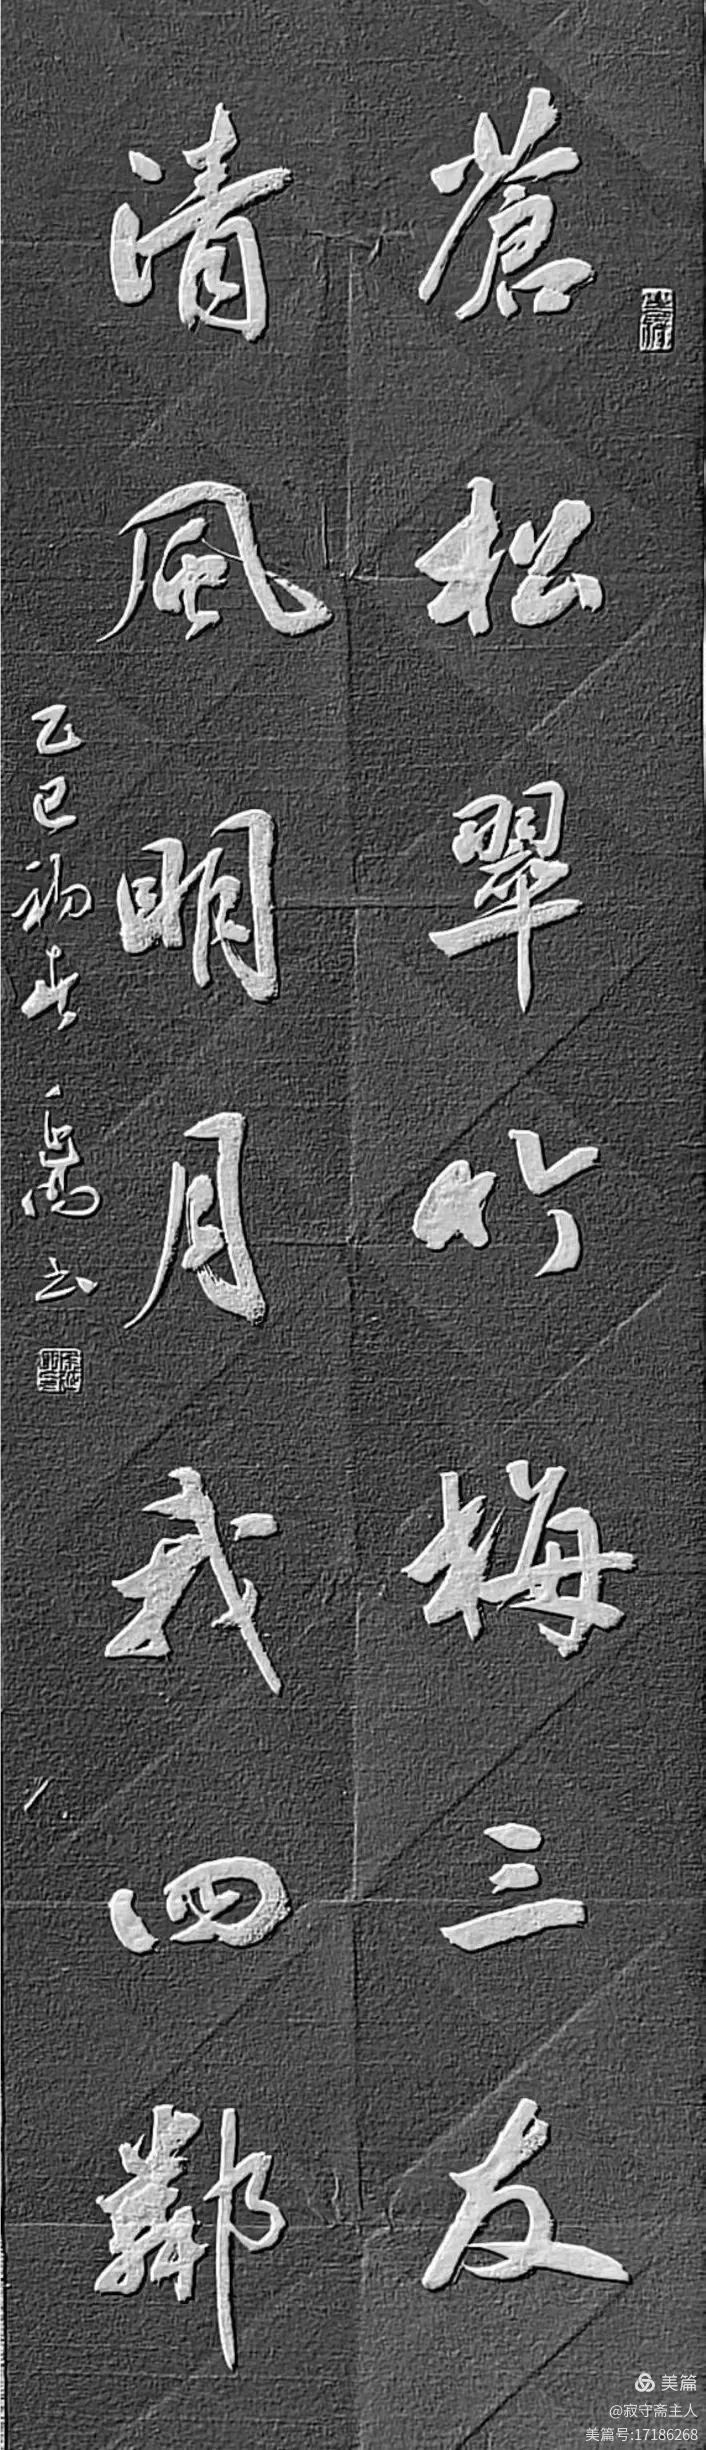 蒼松翠竹梅三友
清風明月我四鄰
乙巳初春
書
美篇
@寂守斋主人
美篇号:17186268